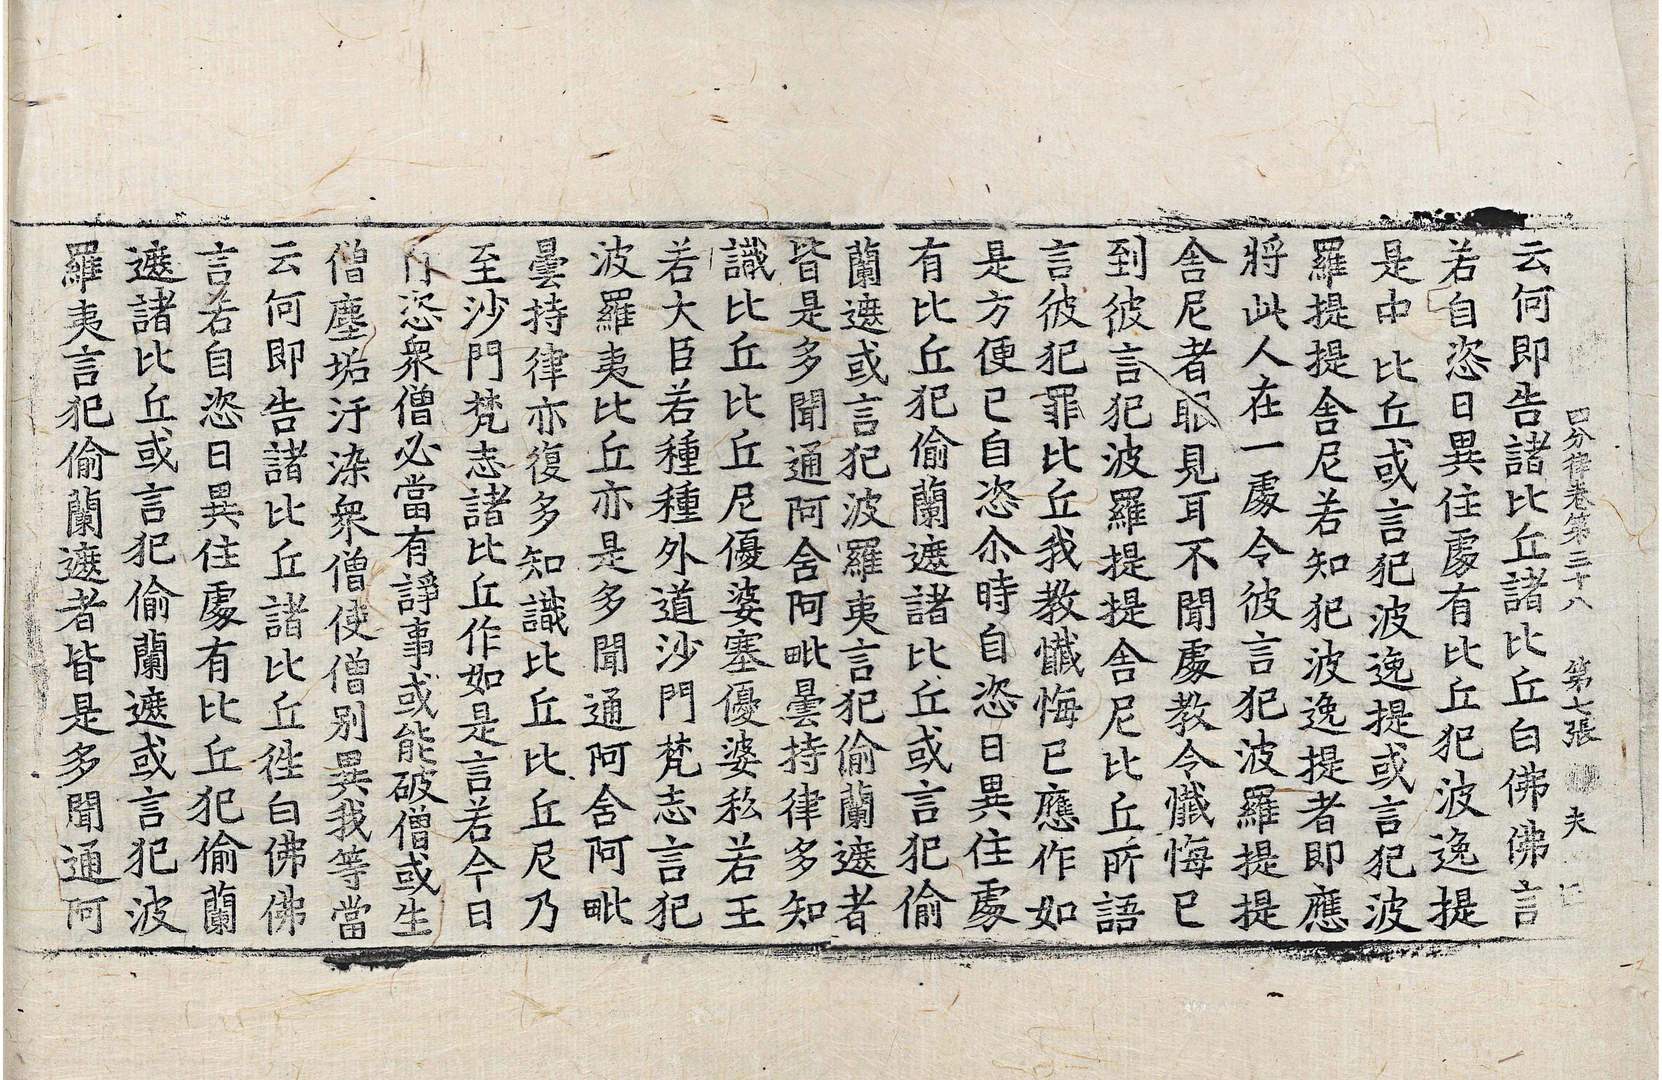 四分律卷第三十八 第七張 夫
云何即告諸比丘諸比丘白佛佛言
若自恣日異住處有比丘犯波逸提
是中比丘或言犯波逸提或言犯波
羅提提舍尼若知犯波逸提者即應
將此人在一處令彼言犯波羅提提
舍尼者眼見耳不聞處教令懺悔已
到彼言犯波羅提提舍尼比丘所語
言彼犯罪比丘我教懺悔已應作如
是方便已自恣尒時自恣日異住處
有比丘犯偷蘭遮諸比丘或言犯偷
蘭遮或言犯波羅夷言犯偷蘭遮者
皆是多聞通阿舍阿毗曇持律多知
識比丘比丘尼優婆塞優婆私若王
若大臣若種種外道沙門梵志言犯
波羅夷比丘亦是多聞通阿舍阿毗
曇持律亦復多知識比丘比丘尼乃
至沙門梵志諸比丘作如是言若今日
作恣衆僧必當有諍事或能破僧或生
僧塵垢汙染衆僧使僧別異我等當
云何即告諸比丘諸比丘往白佛佛
言若自恣日異住處有比丘犯偷蘭
遮諸比丘或言犯偷蘭遮或言犯波
羅夷言犯偷蘭遮者皆是多聞通阿